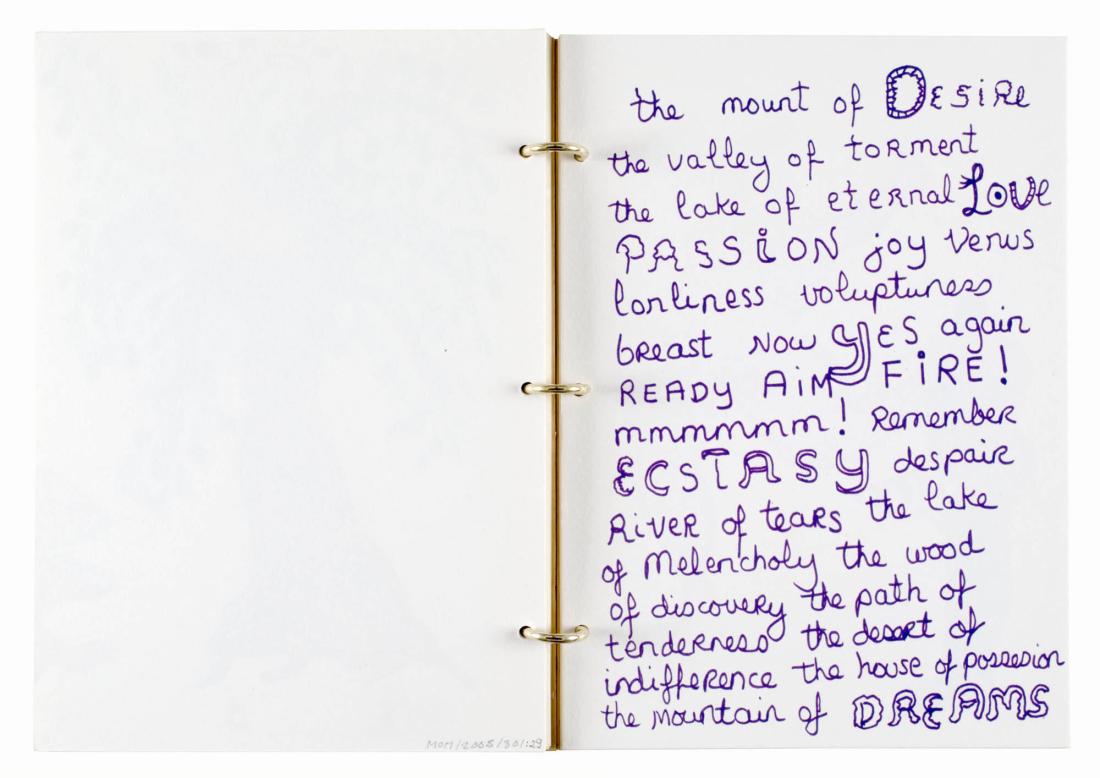 MOM/2005/30/:29
the mount of DESiRe
the valley of toRment
the lake of eteRnal LOVe
PASSiON joy Venus
lonliness voluptuness
bReast Now YES again
READy AiM FiRE!
mmmmmmm! Remember
ECSTASY despaiR
RiVER of teaRs the lake
of Melencholy the wood
of discoveRy the path of
tendeRness the desert of
indiffeRence the house of possesion
the mountain of DREAMS